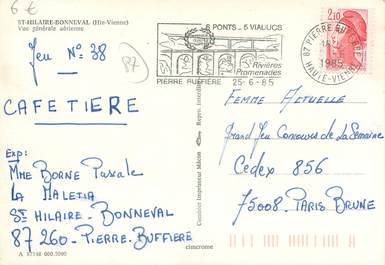 6 €
ST-HILAIRE-BONNEVAL (Hte-Vienne)
Vue générale aérienne
Jeu N° 38
87
CAFETIERE
Exp:
Mme BORNE Pascale
La MALETIA
St HILAIRE - BONNEVAL
87260 - PIERRE-BUFFIERE
A 87148 000.3090
6 PONTS - 5 VIADUCS
Rivières
Promenades
PIERRE BUFFIERE
25-6-85
87 PIERRE BUFFIERE
1985
HAUTE-VIENNE
2,20
Combier Imprimeur Mâcon
cimcrome
FEMME ACTUELLE
Grand Jeu Concours de La Semaine
Cedex 856
75008 - PARIS BRUNE